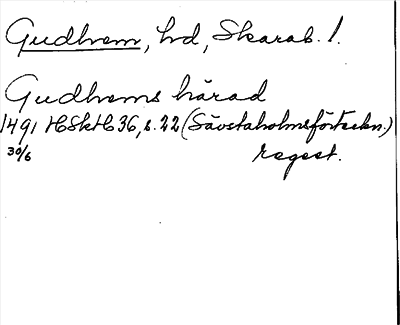 Gudhem, hd, Skarab. l.
Gudhems härad
1491 HSkH 36, s. 22 (Sävstaholmsförteckn.)
30/6 regest.